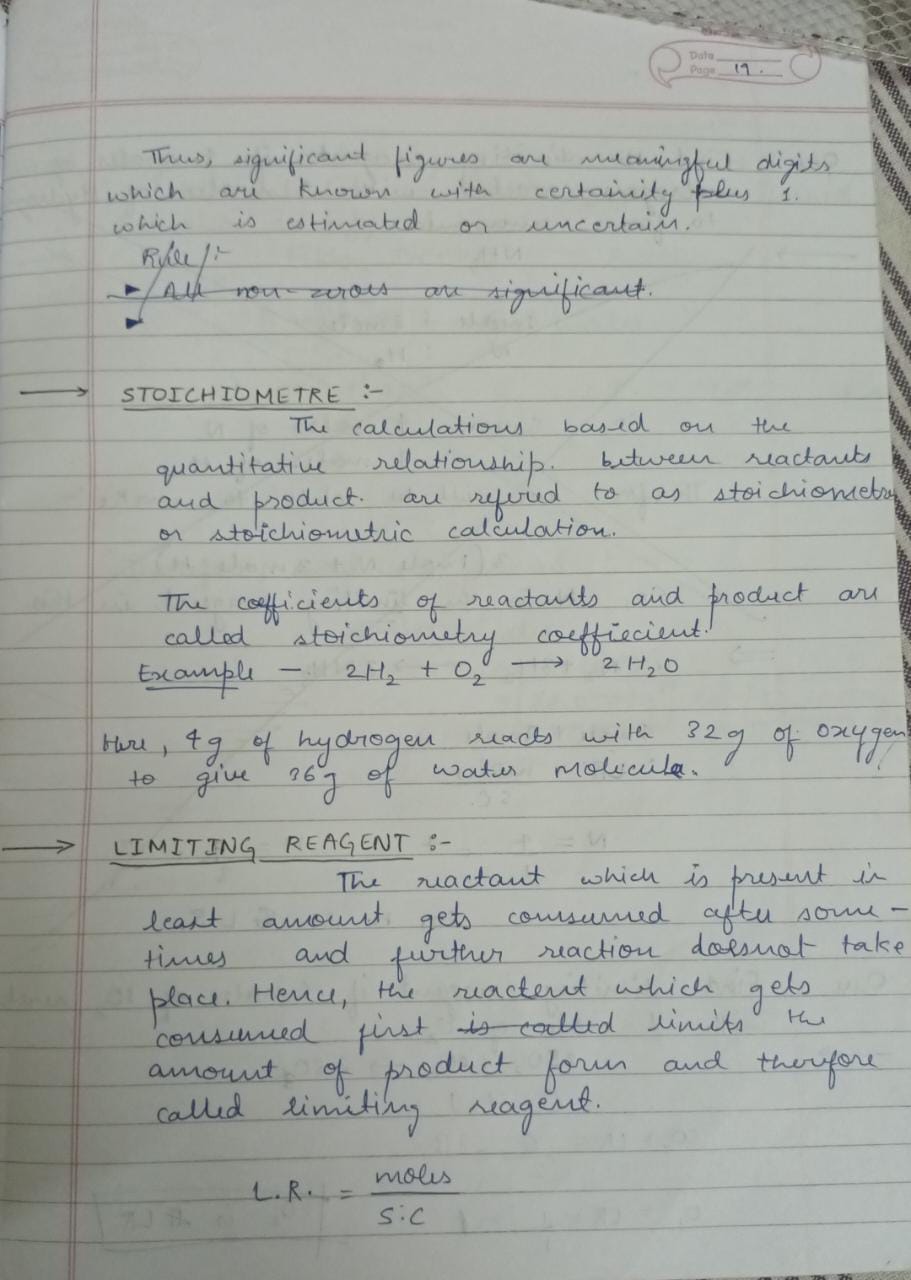 Date
Page 19.
Thus, significant figures are meaningful digits
which are known with certainity plus 1.
which is estimated or uncertain.
Rule :-
All non-zeroes are significant.
STOICHIOMETRE :-
The calculations based on the
quantitative relationship. between reactants
and product. are refered to as stoichiometry
or stoichiometric calculation.
The coefficients of reactants and product are
called stoichiometry coeffiecient.
Example - 2H₂ + O₂ → 2H₂O
Here, 4g of hydrogen reacts with 32g of oxygen
to give 36g of water molecule.
LIMITING REAGENT :-
The reactant which is present in
least amount gets consumed after some-
times and further reaction doesnot take
place. Hence, the reactent which gets
consumed first is called limits the
amount of product form and therefore
called limiting reagent.
L.R. = moles
S.C